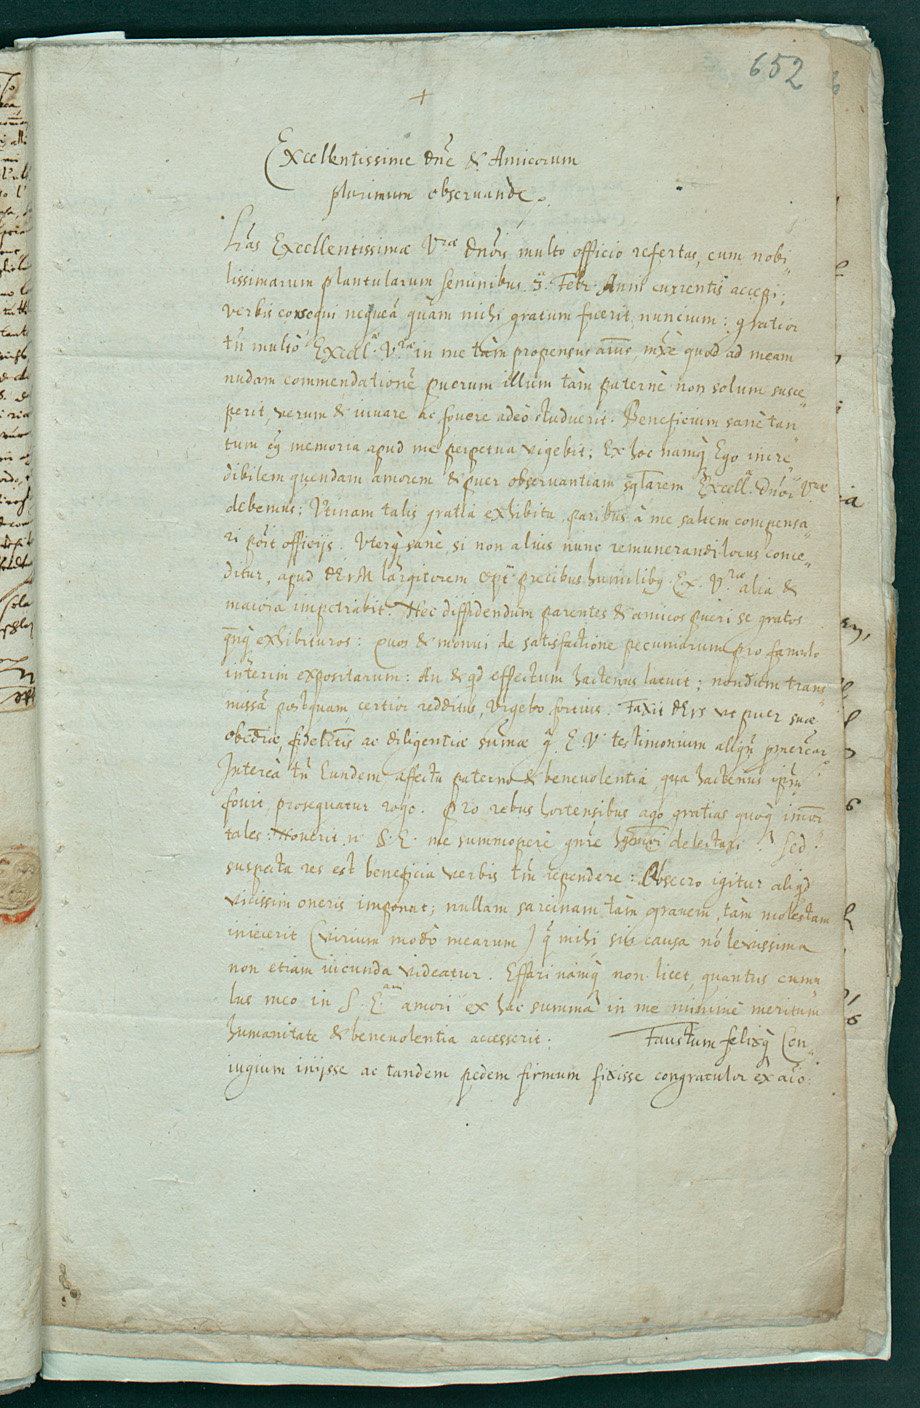 652
+
Excellentissime dn̄e & Amicorum
plurimum observande.
Lr̄as Excellentissimæ Vræ dnōis multo officio refertas, cum nobi
lissimarum plantularum seminibus 5. Febr. Anni currentis accepi;
verbis consequi nequeā quàm mihi gratum fuerit nuncium: gratior
tn̄ multò Excell. Vræ in me tàm propensus aīus, mx̄e quod ad meam
nudam commendationē puerum illum tàm paternè non solum susce
perit, verum & iuuare ac fouere adeò studuerit. Beneficium sanè tan
tum eq memoria apud me perpetua vigebit; Ex hoc namq Ego incre
dibilem quendam amorem & puer observantiam sḡlarem Excell. dnōi Vræ
debemus; Vtinam talis gratia exhibita, paribus à me saltem compensa
ri pōt officijs. Vterq sanè, si non alius nunc remunerandi locus conce
ditur, apud dEVM largitorem opt. precibus humilibq Ex. Vræ alia &
maiora impetrabit. Nec diffidendum parentes & amicos pueri se gratos
exhibituros: quos & monui de satisfactione pecuniarum pro famulo
interim expositarum: An & qd effectum hactenus latuit; nondum trans
missā postquam certior redditus, Vrgebo fortius. Faxit dEVS vt puer suæ
obed̄iæ, fidelit̄is ac diligentiæ sum̄æ q̄. E. V. testimonium aliqn̄ pmereār
Intereà tn̄ Eundem affectu paterno & beneuolentia, qua hactenus ipsū
fouit, prosequatur rogo. Pro rebus hortensibus ago gratias quoq im̄or
tales. Nouerit n. E. me summoperè gn̄re delectari. Sed
suspecta res est beneficia verbis tm̄ rependere: Obsecro igitur aliqd
vicissim oneris imponat; nullam sarcinam tàm grauem, tàm molestam
iniecerit (virium modò mearum) q̄ mihi sua causa nō levissima
non etiam iucunda videatur. Effari namq non licet, quantus cumu
lus meo in E. amori ex hac summâ in me minimè meritum
humanitate & beneuolentia accesserit. Faustum felixq Con
iugium inijsse ac tandem pedem firmum fixisse congratulor ex aīo.